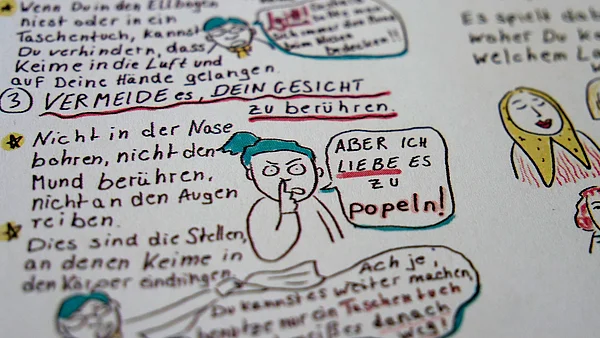 Wenn Du in den Ellbogen
niest oder in ein
Taschentuch, kannst
Du verhindern, dass
Keime in die Luft und
auf Deine Hände gelangen.
beim Niesen
bedecken!!
③ VERMEIDE es, DEIN GESICHT
zu berühren.
Nicht in der Nase
bohren, nicht den
Mund berühren,
nicht an den Augen
reiben.
Dies sind die Stellen,
an denen Keime in
den Körper eindringen.
ABER ICH
LIEBE ES
ZU
popeln!
Ach je,
Du kannst es weiter machen,
benutze nur ein Taschentuch
danach
weg!
Es spielt
woher Du
welchem